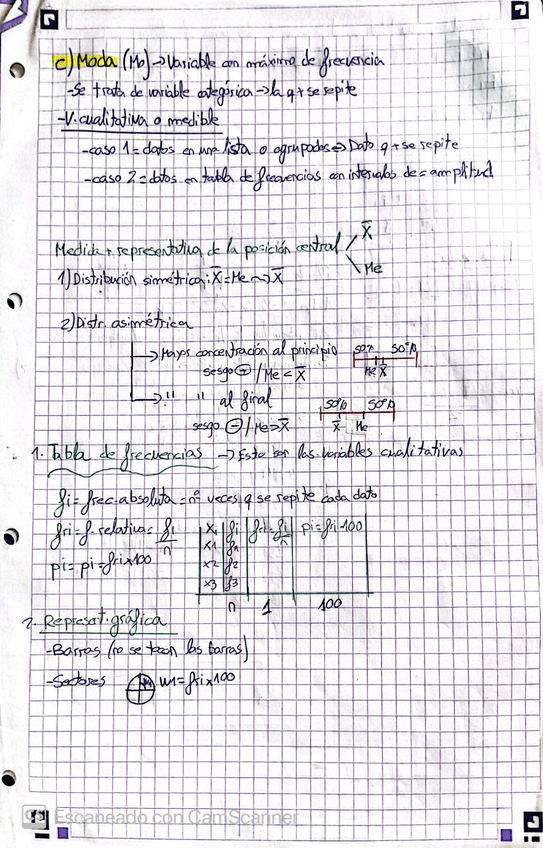 c) Moda (Mo) → Variable con máximo de frecuencia
- Se trata de variable categórica → la q + se repite
- V. cualitativa o medible
- caso 1 = datos en una lista o agrupados → Dato q + se repite
- caso 2 = datos en tabla de frecuencias con intervalos de = amplitud
Medida + representativa de la posición central / X̄
\ Me
1) Distribución simétrica: X̄ = Me → X̄
2) Distr. asimétrica
→ Mayor concentración al principio 50% 50%
sesgo ⊕ / Me < X̄ Me X̄
→ " " al final 50% 50%
sesgo ⊖ / Me > X̄ X̄ Me
1. Tabla de frecuencias → Esto son las variables cualitativas
fi = frec. absoluta = nº veces q se repite cada dato
fri = f. relativa = fi/n
pi = pi = fri x 100
Xi fi fri = fi/n pi = fri · 100
X1
x2 f2
x3 f3
n 1 100
2. Represent. gráfica
- Barras (no se tocan las barras)
- Sectores = fri x 100
Escaneado con CamScanner